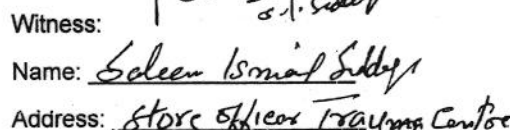 Witness:
Name: Saleem Ismail Siddiqi
Address: Store Officer Trauma Centre